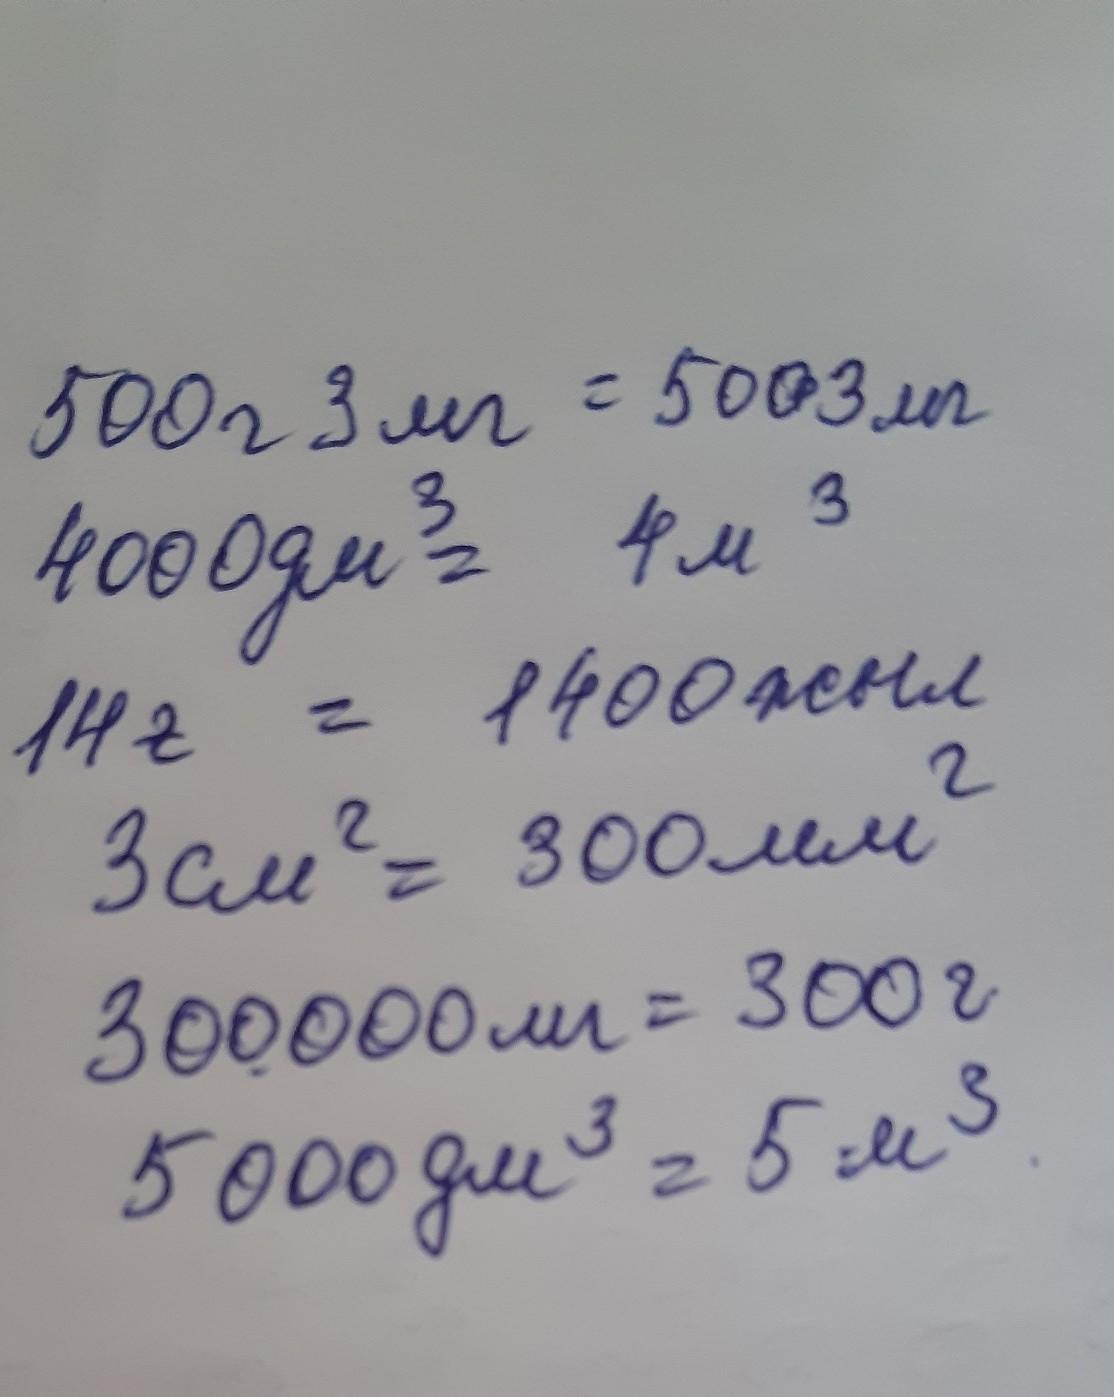 500г 3 мг = 5003 мг
4000дм³ = 4м³
14г = 1400жыл
3см² = 300мм²
300000мг = 300г
5000дм³ = 5м³.